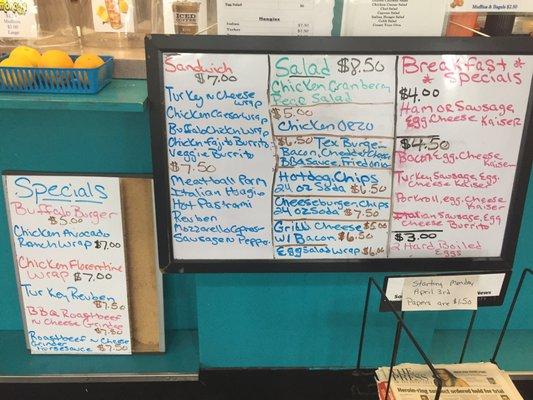 Specials
Buffalo Burger
$5.00
Chicken Avocado
Ranch Wrap $7.00
Chicken Florentine
Wrap $7.00
Turkey Reuben
$7.50
BBQ Roastbeef
n Cheese Grinder
$7.50
Roastbeef n Cheese
Grinder
Horsesauce $7.50
Sandwich
$7.00
Turkey n Cheese
Wrap
Chicken Caesar Wrap
Buffalo Chkn Wrap
Chicken Fajita Burrito
Veggie Burrito
$7.50
Meatball Parm
Italian Hoagie
Hot Pastrami
Reuben
Mozzarella Caprese
Sausage n Pepper
Salad $8.50
Chicken Cranberry
Salad
$5.00
Chicken Orzo
$6.50 Tex Burger
Bacon, Cheddar Cheese
BBQ Sauce,
Hotdog, Chips
24 oz Soda $6.50
Cheeseburger, Chips
24 oz Soda $7.50
Grill Cheese $5.00
w/ Bacon $6.50
Egg Salad Wrap $6.00
Breakfast *
* Specials
$4.00
Ham or Sausage,
Egg Cheese Kaiser
$4.50
Bacon, Egg, Cheese
Kaiser
Turkey Sausage, Egg
Cheese Kaiser
Porkroll, egg, cheese
Kaiser
Italian Sausage, Egg
Cheese Burrito
$3.00
2 Hard Boiled
Eggs
Starting Monday
April 3rd
Papers are $1.50
News
Heroin-ring suspect ordered held for trial
ICED
COFFEE